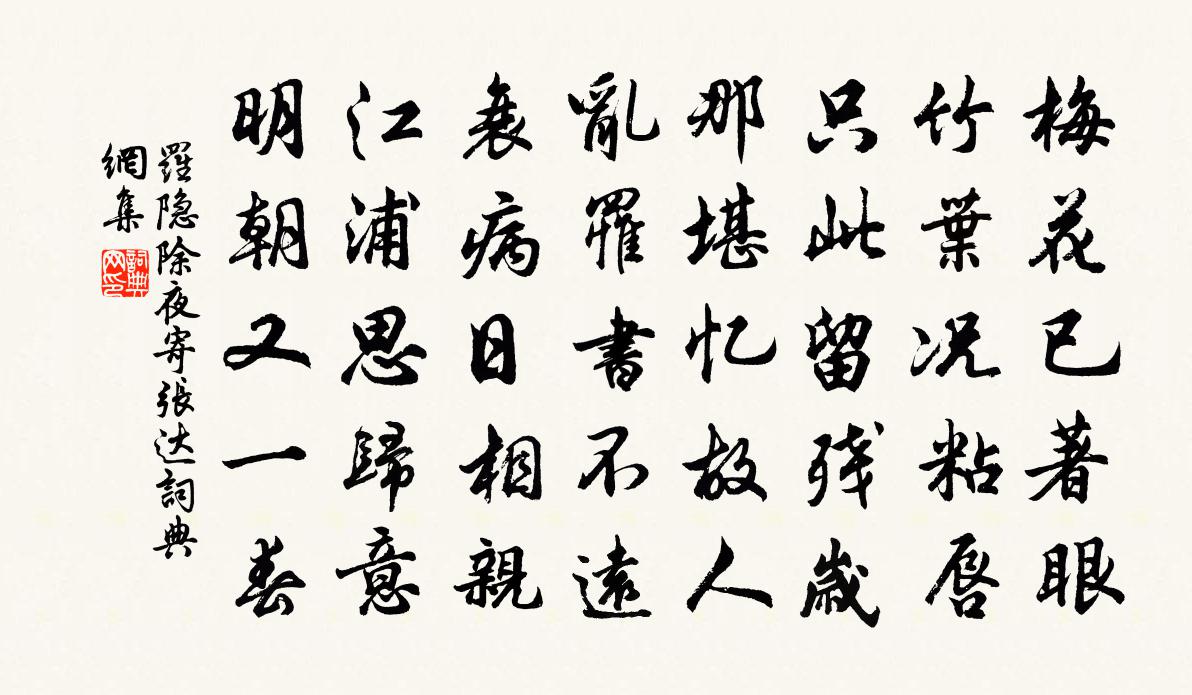 梅花已著眼
竹葉况粘唇
只此留残歳
那堪忆故人
亂罹書不遠
衰病日相親
江浦思歸意
明朝又一春
羅隐除夜寄張达詞典
網集
詞典
网印